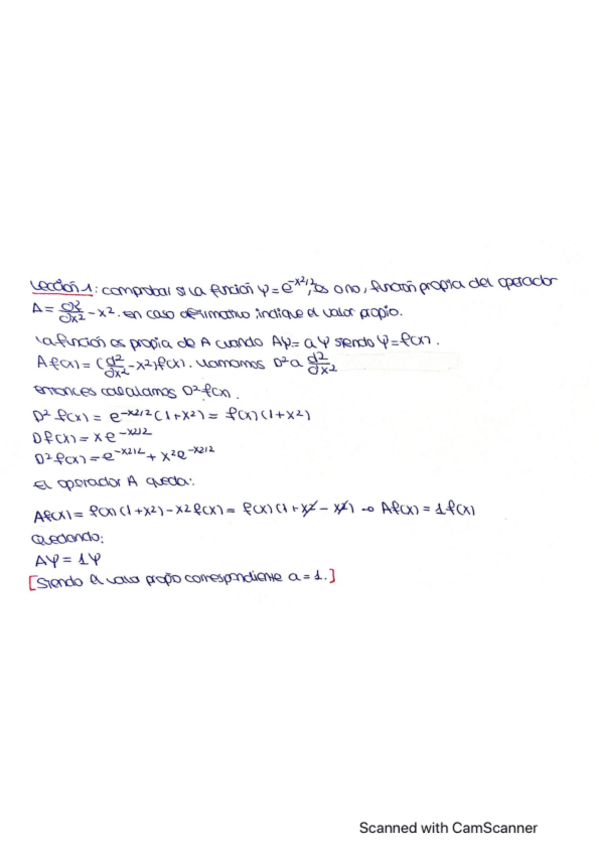 Lección 1: comprobar si la función ψ = e^-x²/2, es o no, función propia del operador
A = d²/dx² - x². en caso afirmativo indique el valor propio.
La función es propia de A cuando Aψ = aψ siendo ψ = f(x).
Af(x) = (d²/dx² - x²)f(x). Llamamos D² a d²/dx²
entonces calculamos D²f(x).
D² f(x) = e^-x²/2 (1+x²) = f(x)(1+x²)
Df(x) = x e^-x²/2
D² f(x) = e^-x²/2 + x² e^-x²/2
El operador A queda:
Af(x) = f(x)(1+x²) - x² f(x) = f(x)(1+x² - x²) → Af(x) = 1f(x)
Quedando:
Aψ = 1ψ
[Siendo el valor propio correspondiente a = 1.]
Scanned with CamScanner